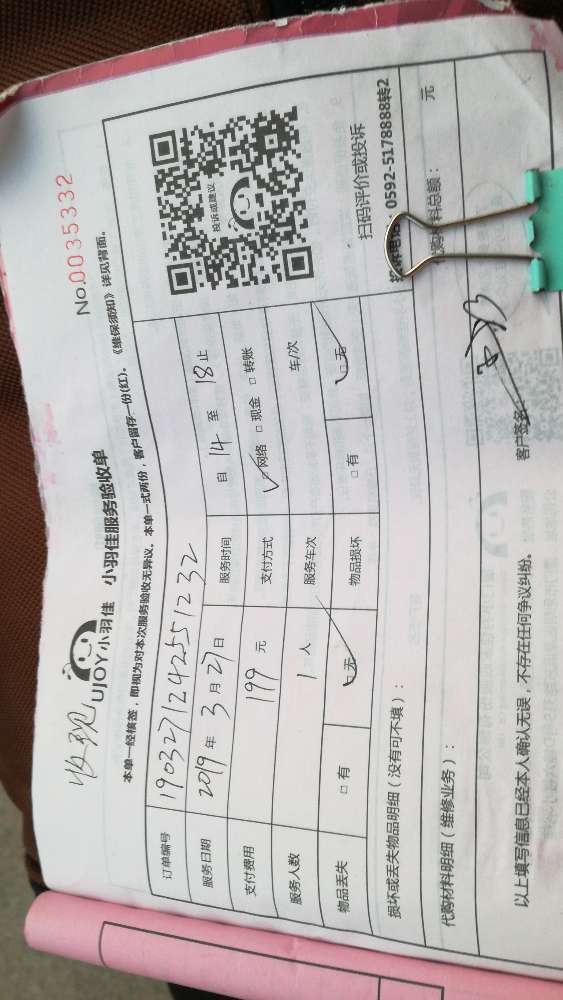 收现
UJOY小羽佳 小羽佳服务验收单
No.0035332
本单一经核签，即视为对本次服务验收无异议。本单一式两份，客户留存一份(红)。《维保须知》详见背面。
订单编号 1903271242551232
服务日期 2019 年 3 月 27 日 服务时间 自 14 至 18 止
支付费用 199 元 支付方式 ☑网络 □现金 □转账
服务人数 1 人 服务车次 车/次
物品丢失 □有 ☑无 物品损坏 □有 ☑无
投诉或建议
扫码评价或投诉
0592-5178888转2
损坏或丢失物品明细（没有可不填）：
代购材料明细（维修业务）： 料总额： 元
以上填写信息已经本人确认无误，不存在任何争议纠纷。 客户签名：